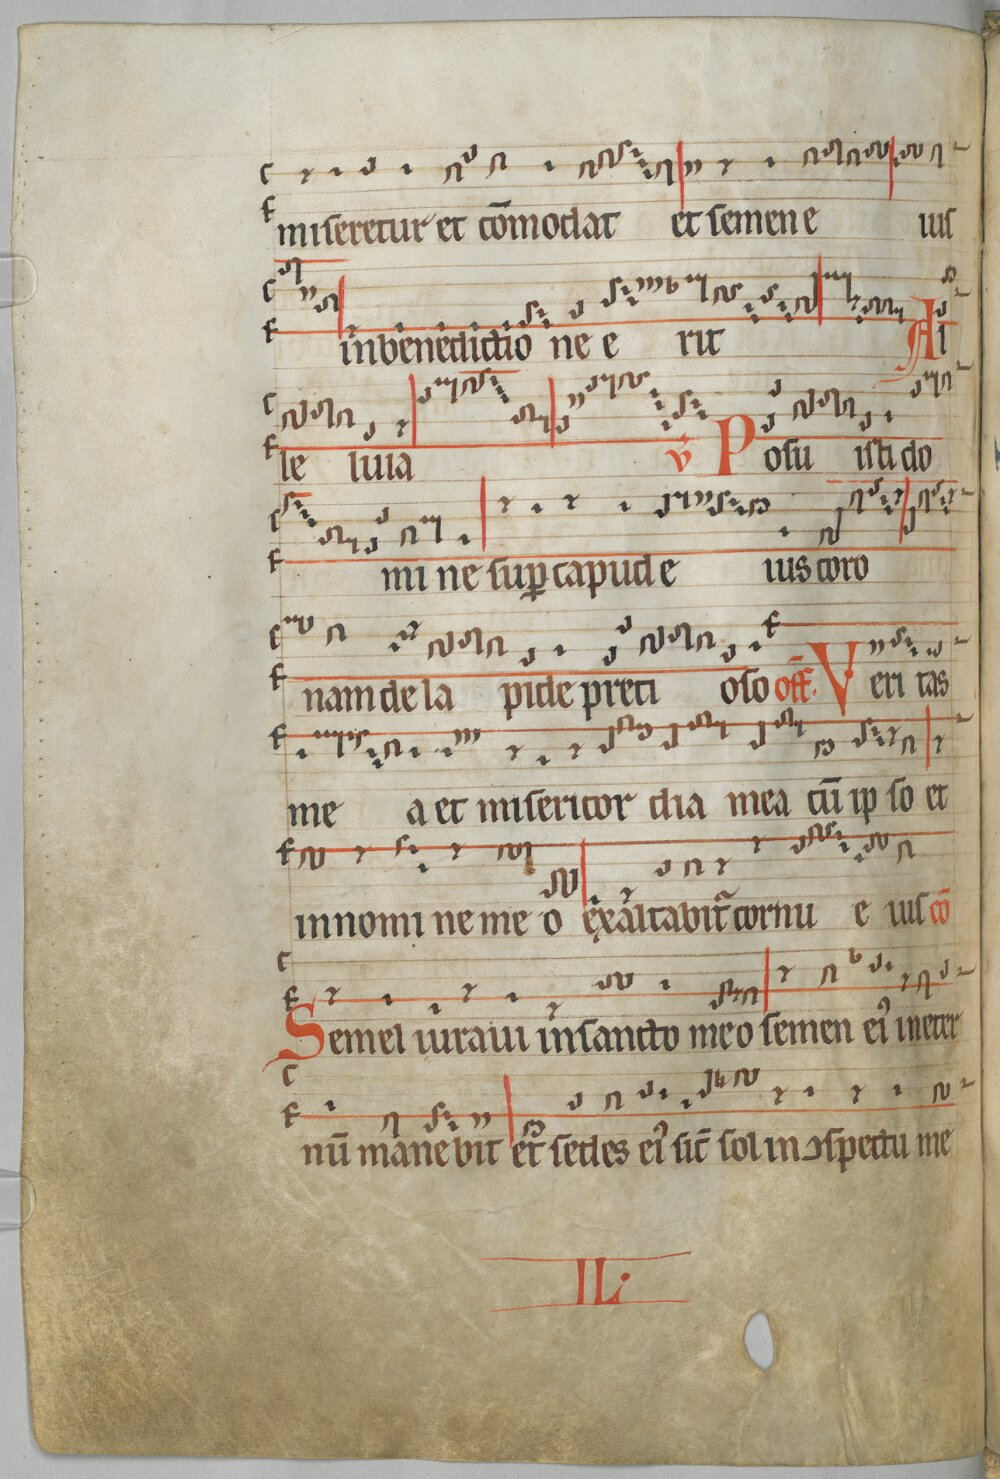 miseretur et cōmodat et semen e ius
in benedictio ne e rit Al
le luia v̄ Posu isti do
mi ne sup̱ caput e ius coro
nam de la pide preci oso off̄. Veri tas
me a et misericor dia mea cū ip so et
in nomi ne me o exaltabit᷑ cornu e ius cō
Semel iuraui in sancto meo semen ei᷒ in eter
nū manebit et᷑ sedes ei᷒ sic̄ sol in ɔspectu me
IL